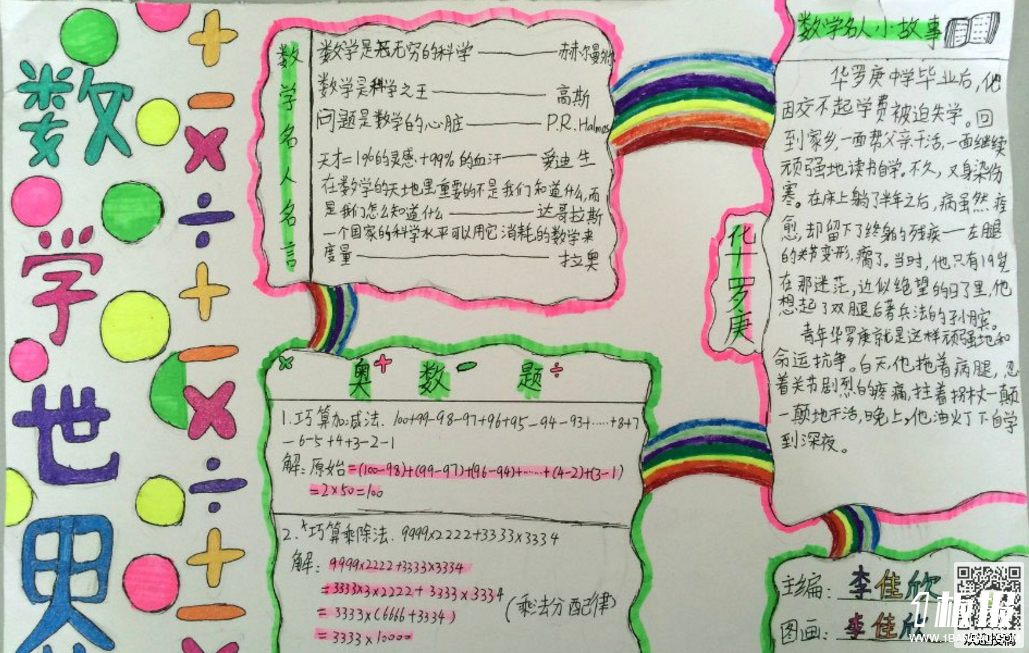 数学世界
数学名人名言
数学是无穷的科学——赫尔曼外尔
数学是科学之王——高斯
问题是数学的心脏——P.R.Halmos
天才=1%的灵感+99%的血汗——爱迪生
在数学的天地里重要的不是我们知道什么,而
是我们怎么知道什么——达哥拉斯
一个国家的科学水平可以用它消耗的数学来
度量——拉奥
奥数题
1.巧算加减法. 100+99-98-97+96+95-94-93+……+8+7
-6-5+4+3-2-1
解:原始=(100-98)+(99-97)+(96-94)+……+(4-2)+(3-1)
=2×50=100
2.巧算乘除法. 9999×2222+3333×3334
解: 9999×2222+3333×3334
=3333×3×2222+3333×3334
=3333×(6666+3334)
(乘法分配律)
=3333×10000
数学名人小故事
华罗庚
华罗庚中学毕业后,他
因交不起学费被迫失学。回
到家乡,一面帮父亲干活,一面继续
顽强地读书自学。不久,又身染伤
寒。在床上躺了半年之后,病虽然痊
愈,却留下了终身的残疾——左腿
的关节变形,瘸了。当时,他只有19岁
在那迷茫,近似绝望的日子里,他
想起了双腿后著兵法的孙膑。
青年华罗庚就是这样顽强地和
命运抗争。白天,他拖着病腿,忍
着关节剧烈的疼痛,拄着拐杖一颠
一颠地干活,晚上,他油灯下自学
到深夜。
主编:李佳欣
图画:李佳欣
板报
WWW.1BANBAO.COM
欢迎投稿